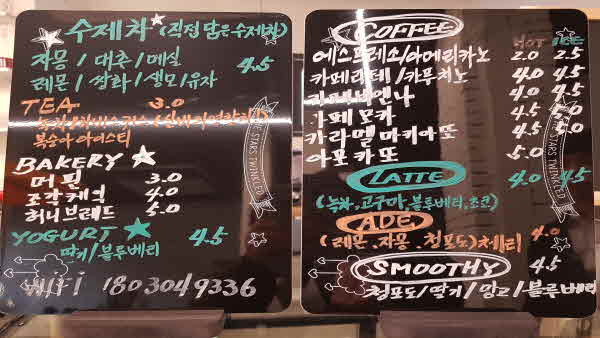 수제차 (직접 담은 수제차)
자몽 / 대추 / 매실
레몬 / 쌍화 / 생모 / 유자 4.5
TEA 3.0
복숭아 아이스티
BAKERY
머핀 3.0
조각케익 4.0
허니브레드 5.0
YOGURT 4.5
딸기/블루베리
WiFi 1803049336
STARS TWINKLED
COFFEE
HOT ICE
에스프레소/아메리카노 2.0 2.5
카페라떼/카푸치노 4.0 4.5
4.0 4.5
카페모카 4.5 5.0
카라멜마키아또 4.5 5.0
아포카또 5.0
LATTE 4.0 4.5
(녹차,고구마,블루베리,초코)
ADE 4.0
(레몬.자몽.청포도)체리
SMOOTHY 4.5
청포도/딸기/망고/블루베리